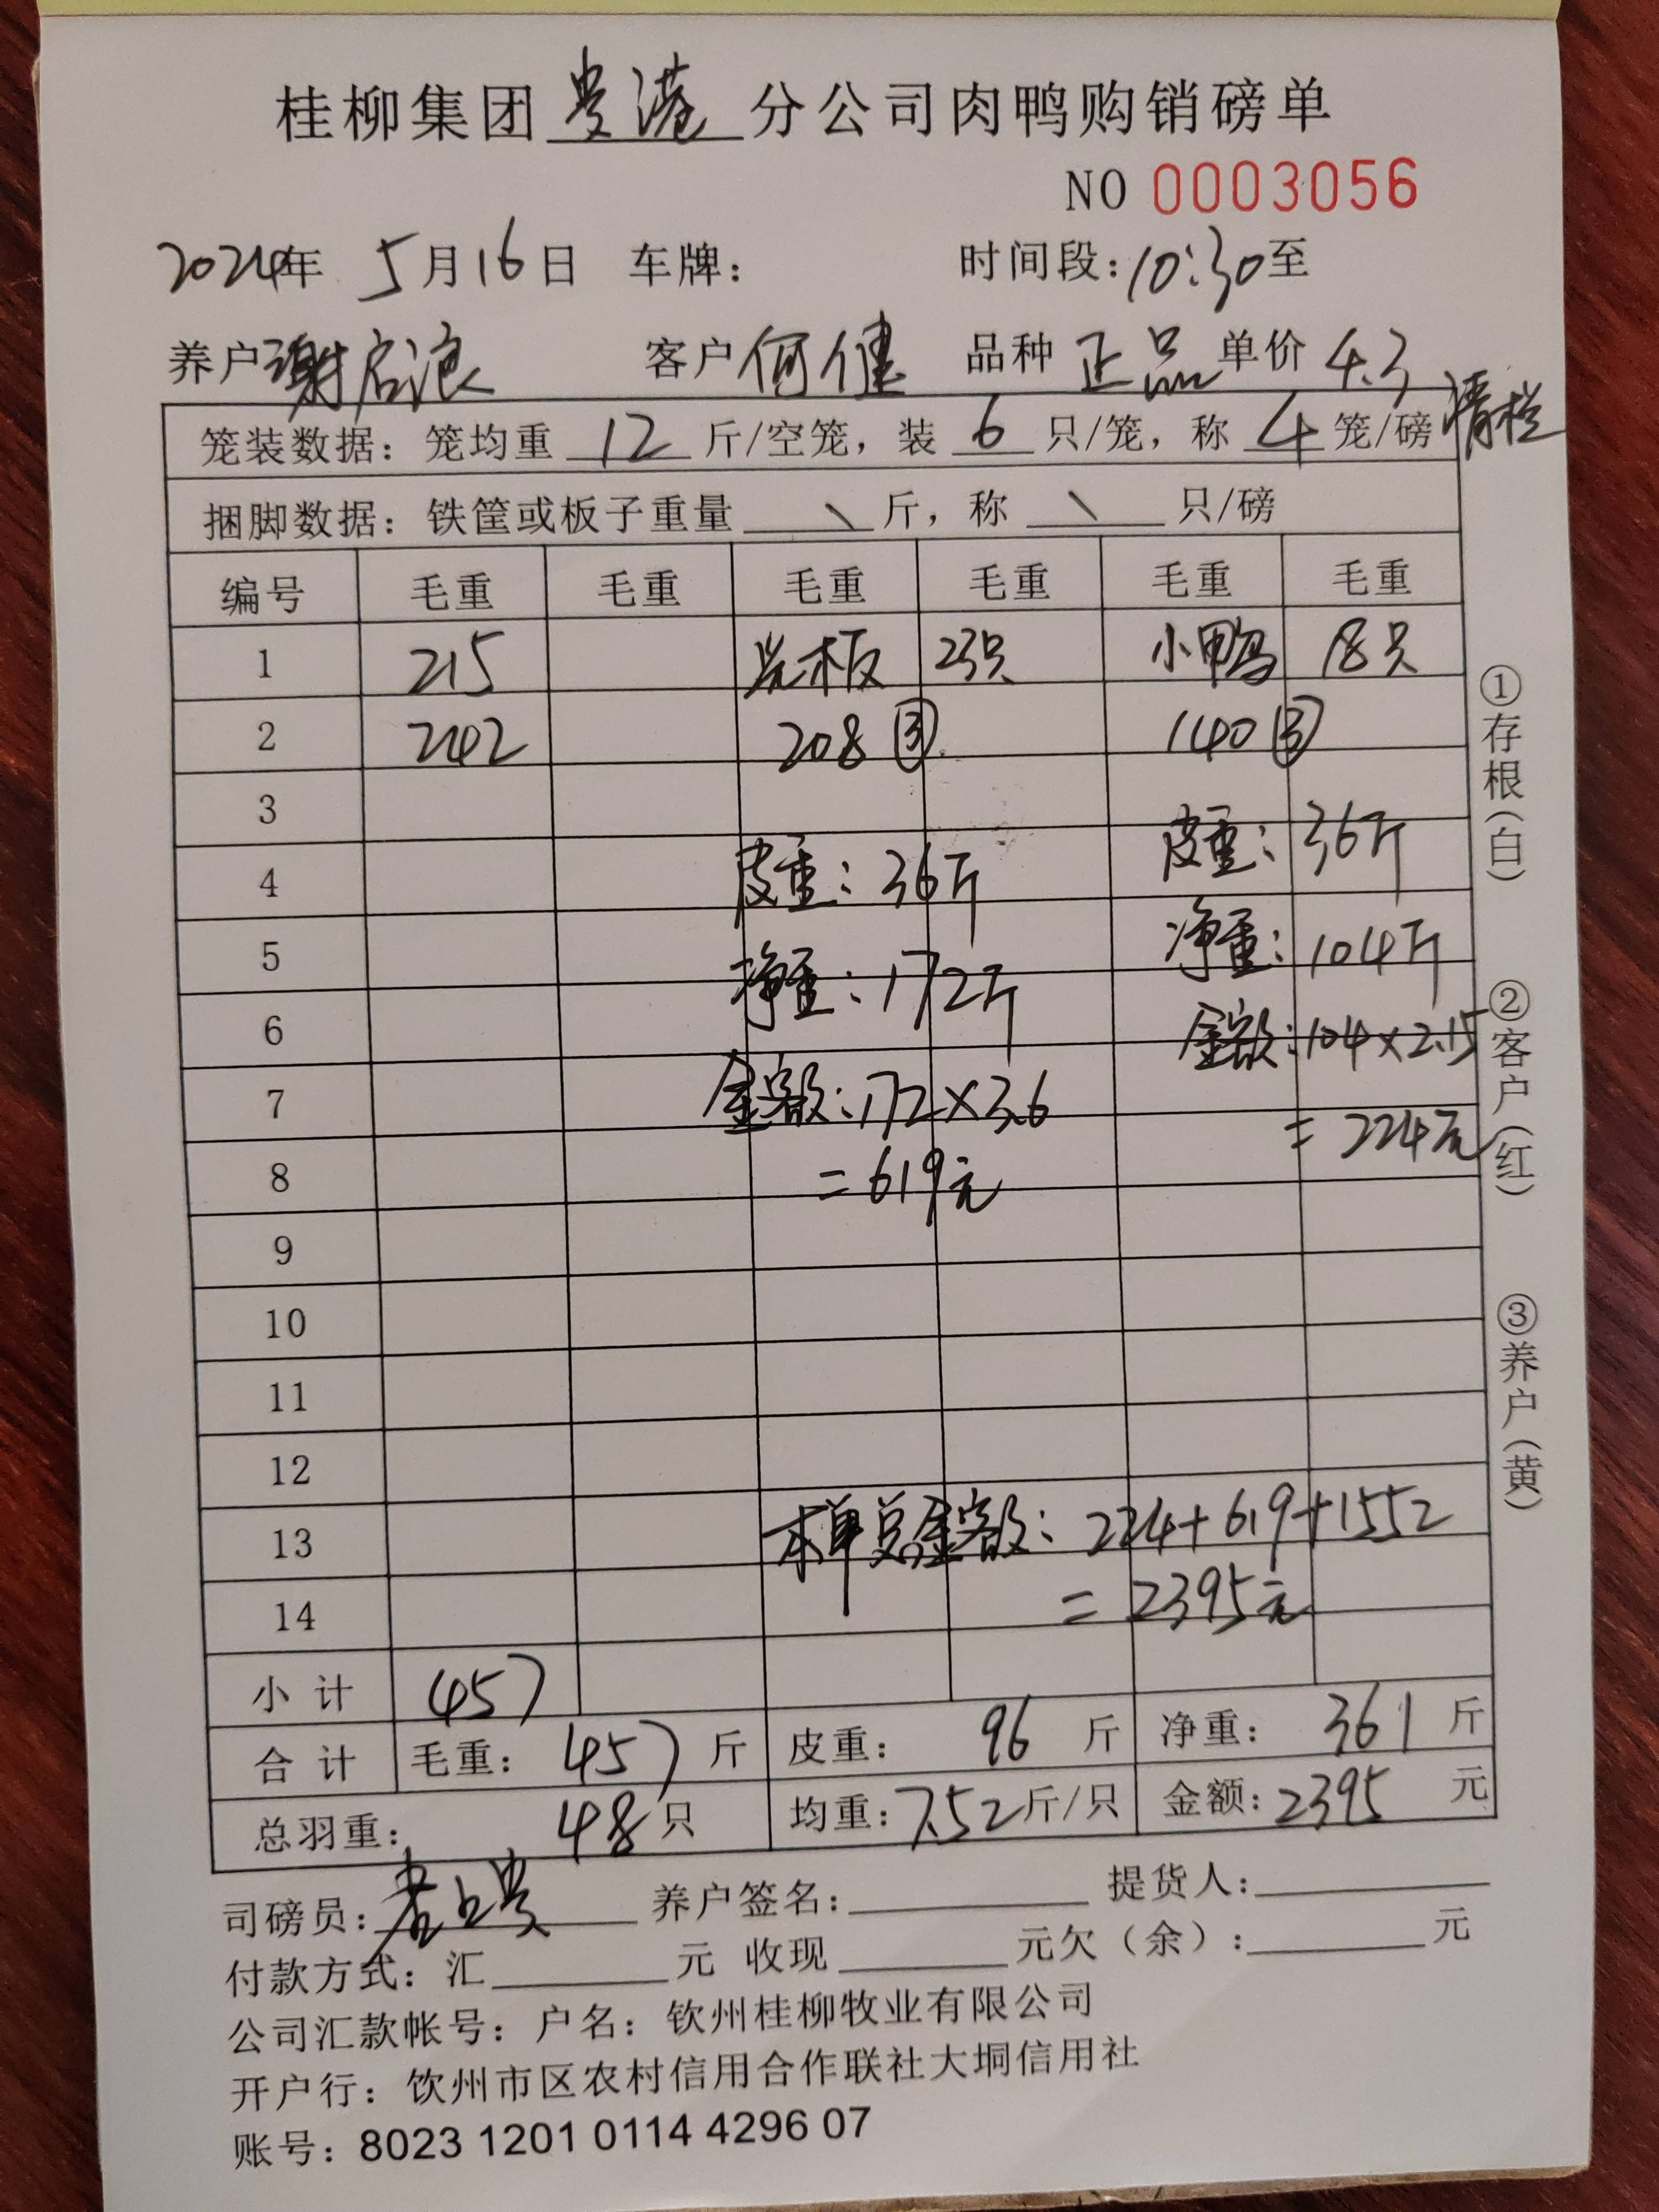 桂柳集团 贵港 分公司肉鸭购销磅单
NO 0003056
2024年 5月16日 车牌： 时间段：10:30至
养户 谢启浪 客户 何健 品种 正品 单价 4.3
清栏
笼装数据：笼均重 12 斤/空笼，装 6 只/笼，称 4 笼/磅
捆脚数据：铁筐或板子重量 \ 斤，称 \ 只/磅
编号 毛重 毛重 毛重 毛重 毛重 毛重
1 215 光板 23只 小鸭 18只
2 242 208 ③ 140 ③
3
4 皮重：36斤 皮重：36斤
5 净重：172斤 净重：104斤
6 金额：104×2.15
7 金额：172×3.6 =224元
8 =619元
9
10
11
12
13 本单总金额：224+619+1552
14 =2395元
小计 457
合计 毛重：457斤 皮重：96斤 净重：361斤
总羽重：48只 均重：7.52斤/只 金额：2395元
司磅员： 养户签名： 提货人：
付款方式：汇 元 收现 元欠（余）： 元
公司汇款帐号：户名：钦州桂柳牧业有限公司
开户行：钦州市区农村信用合作联社大垌信用社
账号：8023 1201 0114 4296 07
①存根（白）
②客户（红）
③养户（黄）